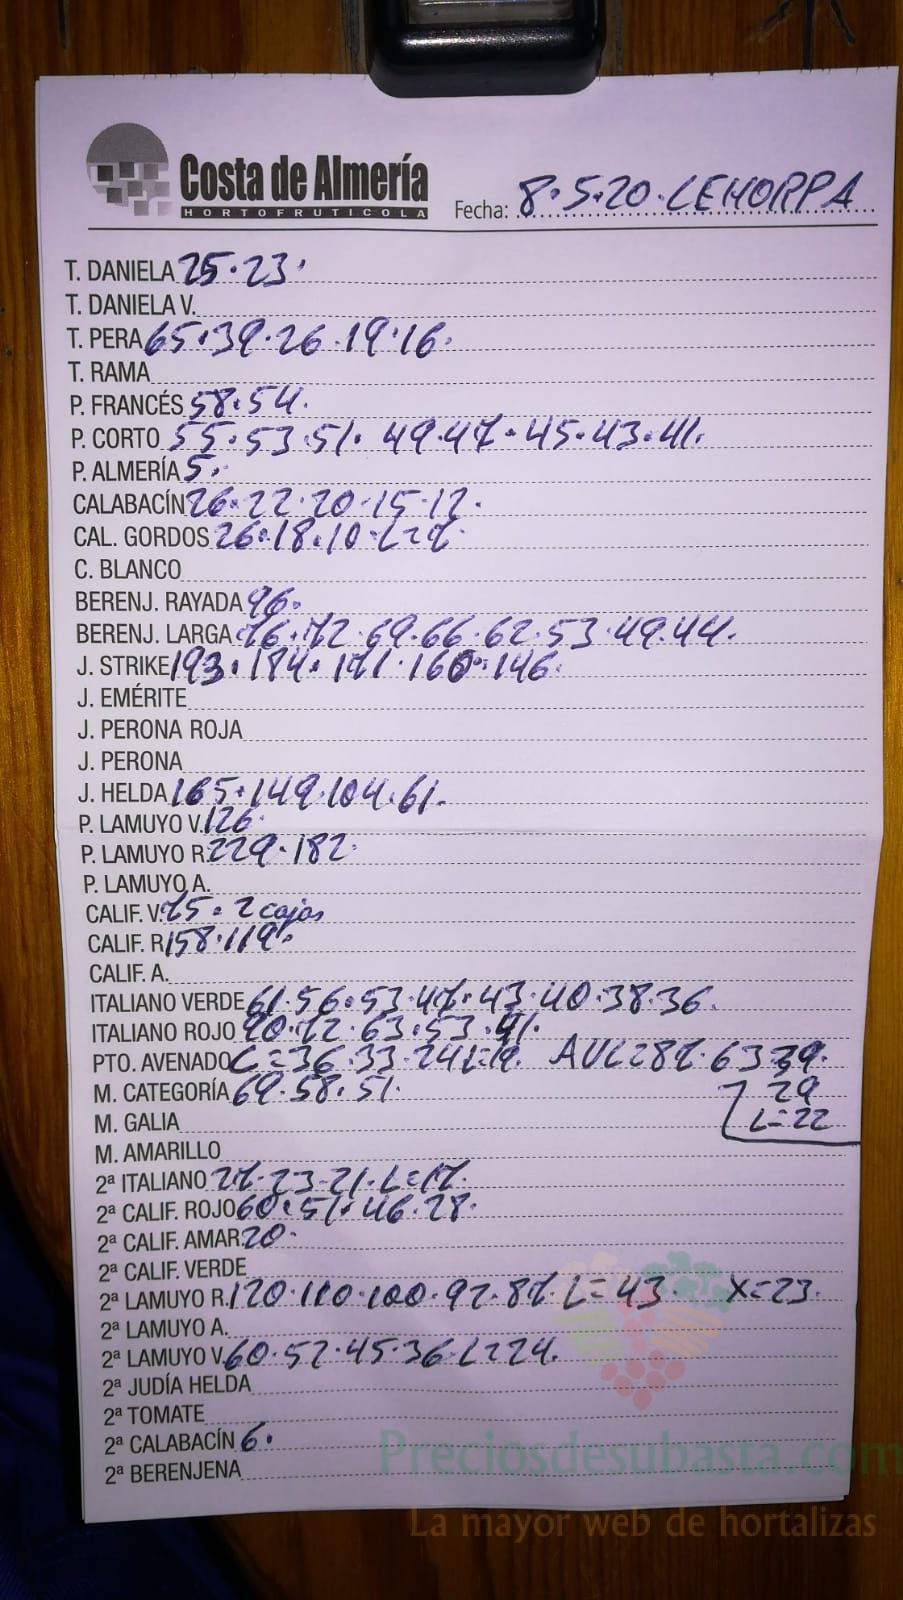 Costa de Almería
HORTOFRUTICOLA
Fecha: 8.5.20.LEHORPA
T. DANIELA 25.23.
T. DANIELA V.
T. PERA 65.39.26.19.16.
T. RAMA
P. FRANCÉS 58.54.
P. CORTO 55.53.51. 49.47.45.43.41.
P. ALMERÍA 5.
CALABACÍN 26.22.20.15.12.
CAL. GORDOS 26.18.10.L=7.
C. BLANCO
BERENJ. RAYADA 96.
BERENJ. LARGA 76.72.69.66.62.53.49.44.
J. STRIKE 193.184.171.160.146.
J. EMÉRITE
J. PERONA ROJA
J. PERONA
J. HELDA 165.149.104.61.
P. LAMUYO V. 126.
P. LAMUYO R. 229.182.
P. LAMUYO A.
CALIF. V. 75. 2 cajas
CALIF. R. 158.119.
CALIF. A.
ITALIANO VERDE 61.56.53.47.43.40.38.36.
ITALIANO ROJO 90.72.63.53.41.
PTO. AVENADO C=36.33.24L=19. AVL=87.63 39.
M. CATEGORÍA 69.58.51. 29
M. GALIA L=22
M. AMARILLO
2ª ITALIANO 27.23.21.L=17.
2ª CALIF. ROJO 60.51.46.28.
2ª CALIF. AMAR. 20.
2ª CALIF. VERDE
2ª LAMUYO R. 120.110.100.92.87.L=43. X=23.
2ª LAMUYO A.
2ª LAMUYO V. 60.52.45.36.L=24.
2ª JUDÍA HELDA
2ª TOMATE
2ª CALABACÍN 6.
2ª BERENJENA
Preciosdesubasta.com
La mayor web de hortalizas